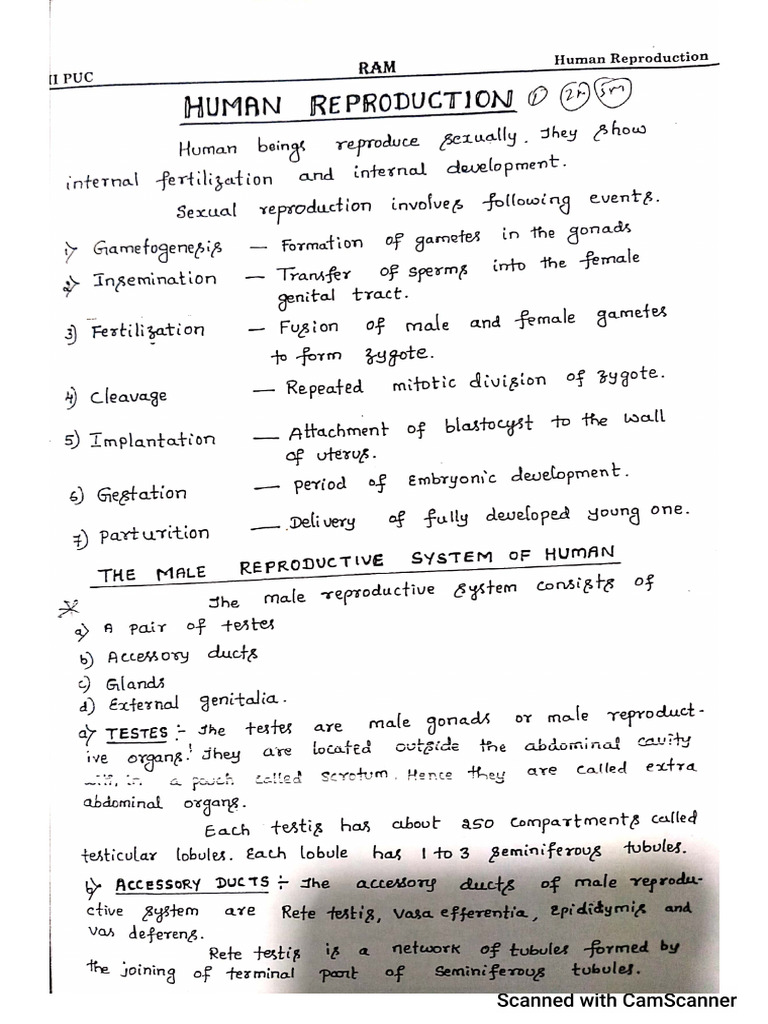 II PUC RAM Human Reproduction
HUMAN REPRODUCTION
Human beings reproduce sexually. They show
internal fertilization and internal development.
Sexual reproduction involves following events.
1) Gametogenesis — Formation of gametes in the gonads
2) Insemination — Transfer of sperms into the female
genital tract.
3) Fertilization — Fusion of male and female gametes
to form zygote.
4) Cleavage — Repeated mitotic division of zygote.
5) Implantation — Attachment of blastocyst to the wall
of uterus.
6) Gestation — period of Embryonic development.
7) Parturition — Delivery of fully developed young one.
THE MALE REPRODUCTIVE SYSTEM OF HUMAN
The male reproductive system consists of
a) A pair of testes
b) Accessory ducts
c) Glands
d) External genitalia.
a) TESTES :- The testes are male gonads or male reproduct-
ive organs! They are located outside the abdominal cavity
a pouch called scrotum. Hence they are called extra
abdominal organs.
Each testis has about 250 compartments called
testicular lobules. Each lobule has 1 to 3 seminiferous tubules.
b) ACCESSORY DUCTS :- The accessory ducts of male reprodu-
ctive system are Rete testis, Vasa efferentia, Epididymis and
vas deferens.
Rete testis is a network of tubules formed by
the joining of terminal part of seminiferous tubules.
Scanned with CamScanner